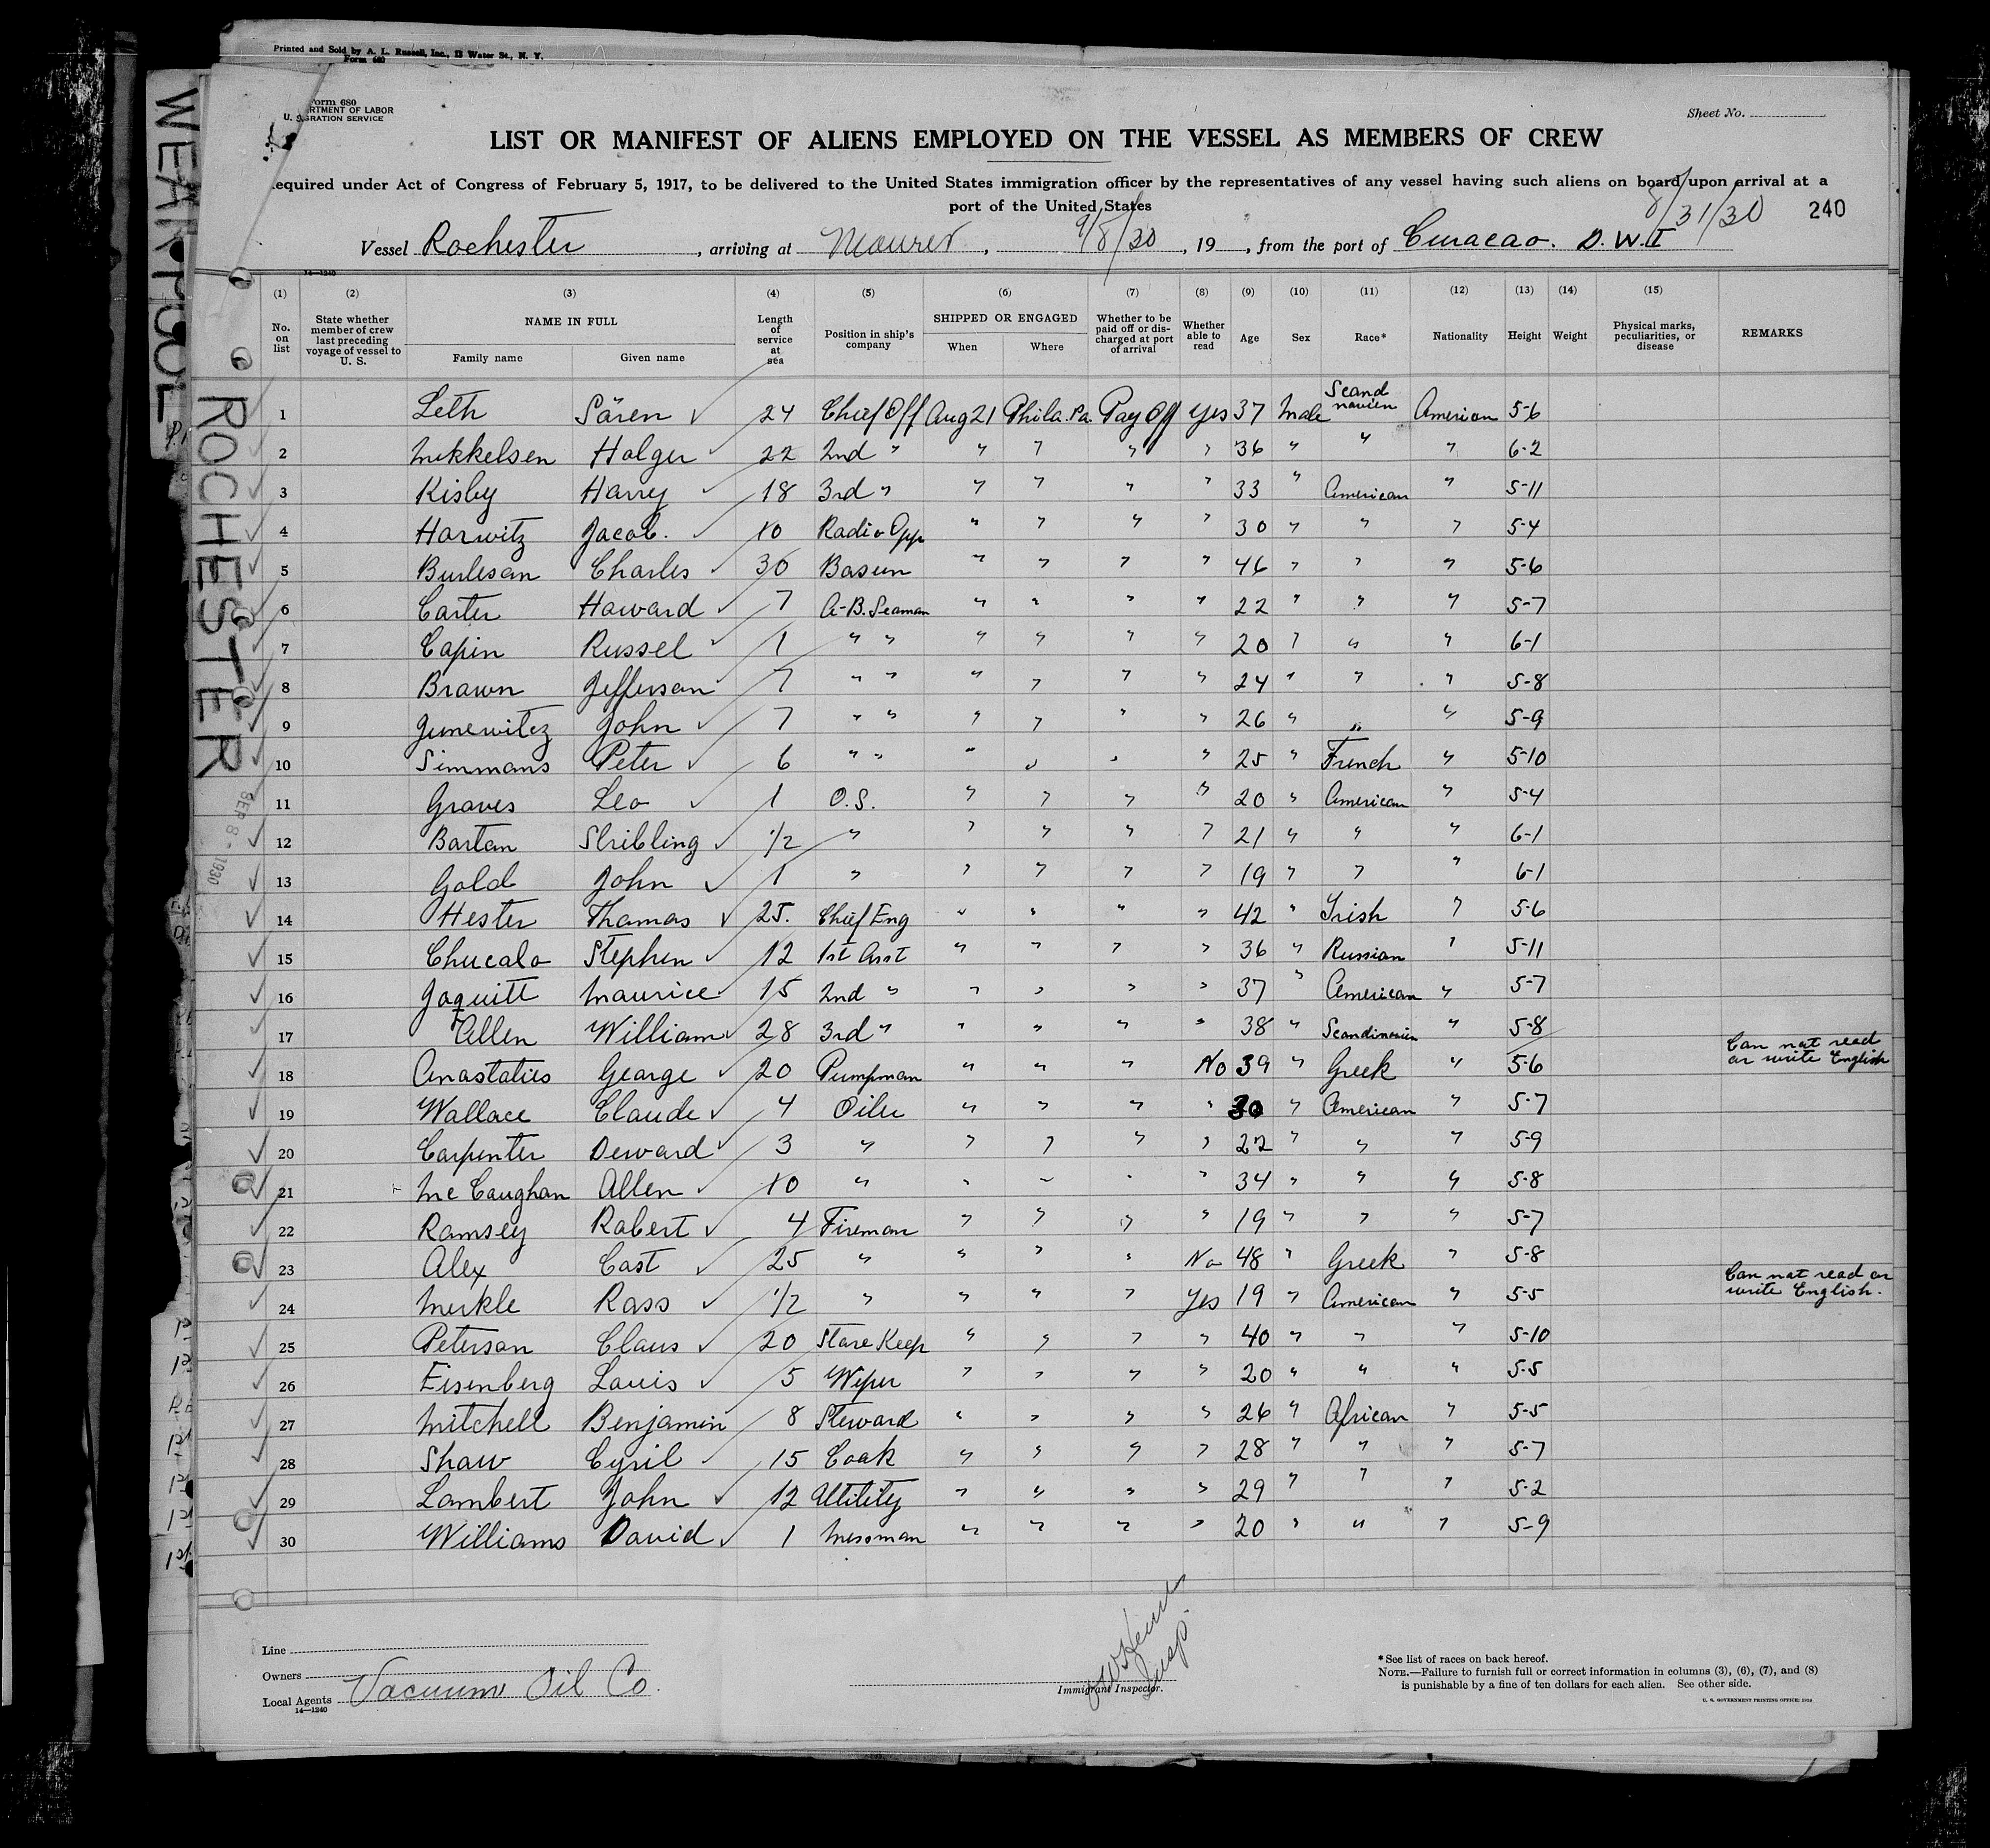 Printed and Sold by A. L. Russell, Inc., 13 Water St., N. Y.
Form 680
Form 680
RTMENT OF LABOR
U. S. GRATION SERVICE
Sheet No.
LIST OR MANIFEST OF ALIENS EMPLOYED ON THE VESSEL AS MEMBERS OF CREW
equired under Act of Congress of February 5, 1917, to be delivered to the United States immigration officer by the representatives of any vessel having such aliens on board upon arrival at a
port of the United States
8/31/30 240
Vessel Rochester, arriving at Maurer, 9/8/30, 19, from the port of Curacao. D.W.I
14—1240
(1) (2) (3) (4) (5) (6) (7) (8) (9) (10) (11) (12) (13) (14) (15)
No. on list State whether member of crew last preceding voyage of vessel to U. S. NAME IN FULL Family name Given name Length of service at sea Position in ship's company SHIPPED OR ENGAGED When Where Whether to be paid off or discharged at port of arrival Whether able to read Age Sex Race* Nationality Height Weight Physical marks, peculiarities, or disease REMARKS
1 Leth Sören 24 Chief Off Aug 21 Phila. Pa. Pay Off Yes 37 Male Scandnavien American 5-6
2 Mikkelsen Holger 22 2nd " " " " " 36 " " " 6-2
3 Kisby Harry 18 3rd " " " " " 33 " American " 5-11
4 Horwitz Jacob. 10 Radio Opp " " " " 30 " " " 5-4
5 Burleson Charles 30 Bosun " " " " 46 " " " 5-6
6 Carter Howard 7 A-B. Seaman " " " " 22 " " " 5-7
7 Capin Russel 1 " " " " " " 20 " " " 6-1
8 Brown Jefferson 7 " " " " " " 24 " " " 5-8
9 Junewitez John 7 " " " " " " 26 " " " 5-9
10 Simmons Peter 6 " " " " " " 25 " French " 5-10
11 Graves Leo 1 O.S. " " " " 20 " American " 5-4
12 Barton Stribling 1/2 " " " " " 21 " " " 6-1
13 Gold John 1 " " " " " 19 " " " 6-1
14 Hester Thomas 25. Chief Eng " " " " 42 " Irish " 5-6
15 Chucalo Stephen 12 1st Asst " " " " 36 " Russian " 5-11
16 Jaquitt Maurice 15 2nd " " " " " 37 " American " 5-7
17 Allen William 28 3rd " " " " " 38 " Scandinavien " 5-8
18 Anastatios George 20 Pumpman " " " No 39 " Greek " 5-6 Can not read or write English
19 Wallace Claude 4 Oiler " " " " 30 " American " 5-7
20 Carpenter Deward 3 " " " " " 22 " " " 5-9
21 Mc Caughan Allen 10 " " " " " 34 " " " 5-8
22 Ramsey Robert 4 Fireman " " " " 19 " " " 5-7
23 Alex Cost 25 " " " " No 48 " Greek " 5-8
24 Merkle Ross 1/2 " " " " Yes 19 " American " 5-5 Can not read or write English.
25 Peterson Claus 20 Store Keep " " " " 40 " " " 5-10
26 Eisenberg Louis 5 Wiper " " " " 20 " " " 5-5
27 Mitchell Benjamin 8 Steward " " " " 26 " African " 5-5
28 Shaw Cyril 15 Cook " " " " 28 " " " 5-7
29 Lambert John 12 Utility " " " " 29 " " " 5-2
30 Williams David 1 Messman " " " " 20 " " " 5-9
WEAR POOL
ROCHESTER
SEP 8 - 1930
Line
Owners
Local Agents Vacuum Oil Co.
14—1240
Insp.
Immigrant Inspector.
*See list of races on back hereof.
NOTE.—Failure to furnish full or correct information in columns (3), (6), (7), and (8)
is punishable by a fine of ten dollars for each alien. See other side.
U. S. GOVERNMENT PRINTING OFFICE: 1929